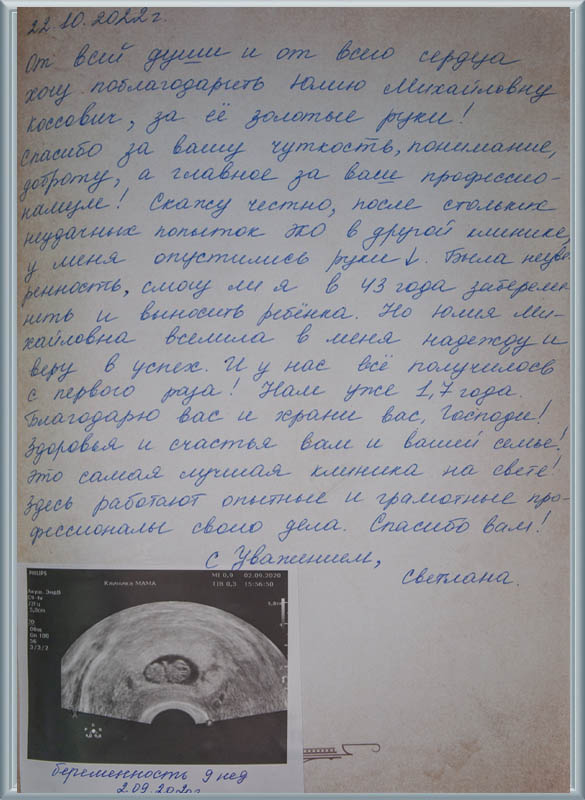 22.10.2022г.
От всей души и от всего сердца
хочу поблагодарить Юлию Михайловну
Коссович, за её золотые руки!
Спасибо за вашу чуткость, понимание,
доброту, а главное за ваш профессио-
нализм! Скажу честно, после стольких
неудачных попыток ЭКО в другой клинике,
у меня опустились руки ↓. Была неуве-
ренность, смогу ли я в 43 года заберемен
нить и выносить ребёнка. Но Юлия Ми-
хайловна вселила в меня надежду и
веру в успех. И у нас всё получилось
с первого раза! Нам уже 1,7 года.
Благодарю вас и храни вас, Господи!
Здоровья и счастья вам и вашей семье!
Это самая лучшая клиника на свете!
Здесь работают опытные и грамотные про-
фессионалы своего дела. Спасибо вам!
С Уважением,
Светлана.
PHILIPS
Клиника МАМА
MI 0,9 02.09.2020
TIB 0,3 15:56:50
Акуш. ЭндВ
C9-4v
72Гц
5,0см
2D
Общ
Gn 100
56
3/3/2
5,0см
беременность 9 нед
2.09.2020г